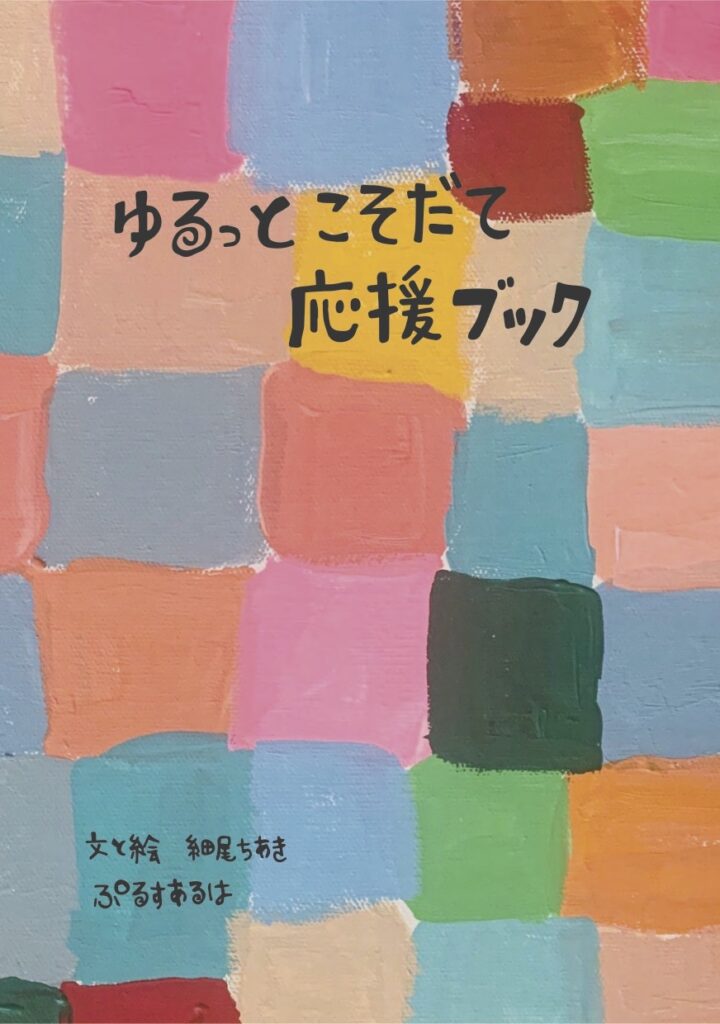 ゆるっと こそだて
応援ブック
文と絵 細尾ちあき
ぷるすあるは